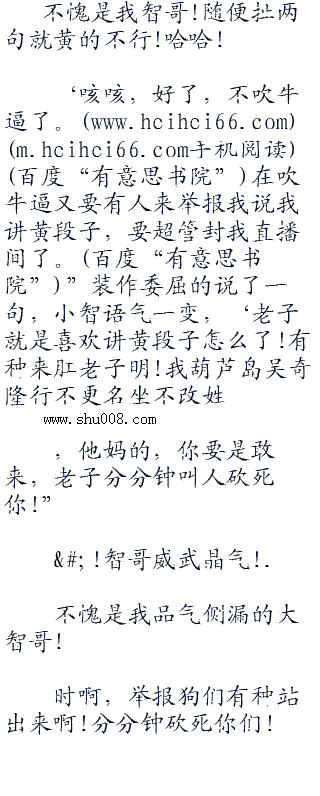 不愧是我智哥!随便扯两
句就黄的不行!哈哈!
‘咳咳，好了，不吹牛
逼了。(www.hcihci66.com)
(m.hcihci66.com手机阅读)
(百度“有意思书院”)在吹
牛逼又要有人来举报我说我
讲黄段子，要超管封我直播
间了。(百度“有意思书
院”)”装作委屈的说了一
句，小智语气一变，‘老子
就是喜欢讲黄段子怎么了!有
种来肛老子明!我葫芦岛吴奇
隆行不更名坐不改姓
www.shu008.com
，他妈的，你要是敢
来，老子分分钟叫人砍死
你!”
&#;!智哥威武晶气!.
不愧是我品气侧漏的大
智哥!
时啊，举报狗们有种站
出来啊!分分钟砍死你们!